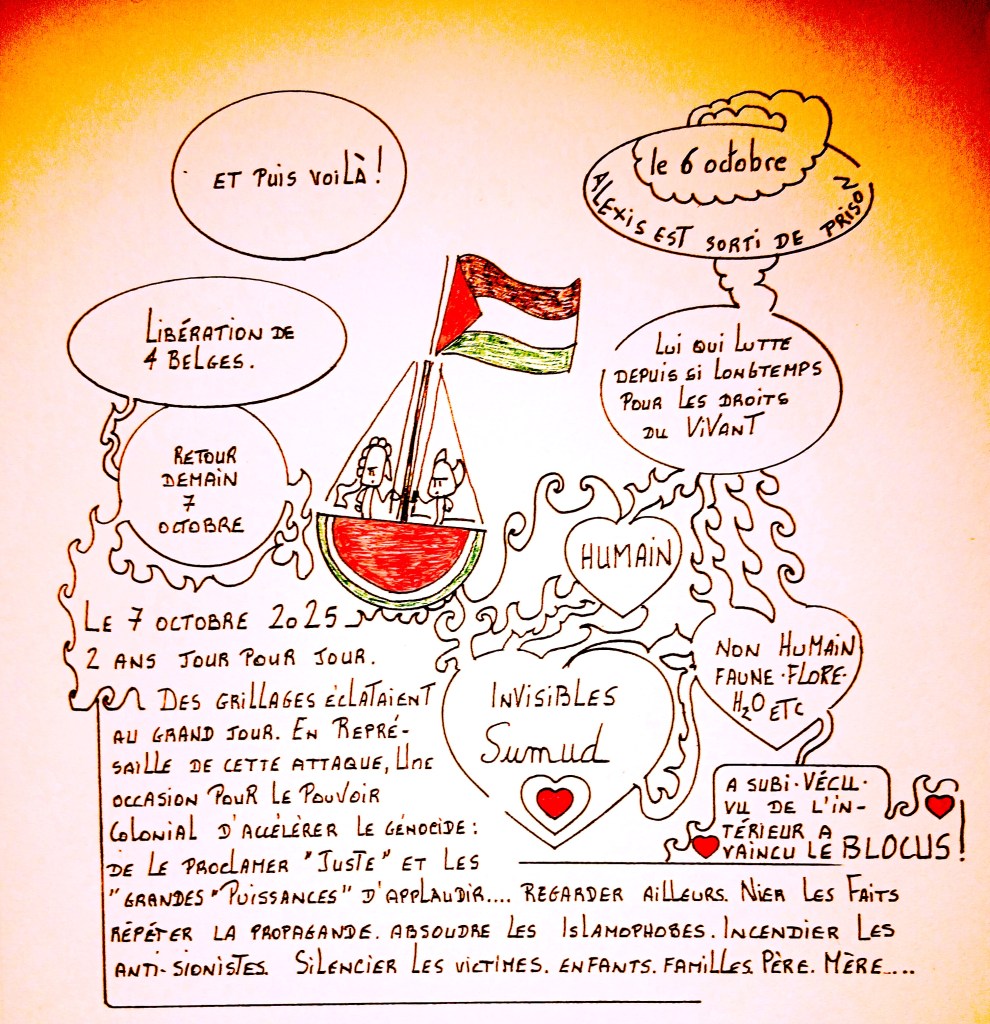 ET PUIS VOILÀ !
le 6 octobre
ALEXIS EST SORTI DE PRISON
LIBÉRATION DE
4 BELGES.
LUI QUI LUTTE
DEPUIS SI LONGTEMPS
POUR LES DROITS
DU VIVANT
RETOUR
DEMAIN
7
OCTOBRE
HUMAIN
NON HUMAIN
FAUNE · FLORE ·
H2O ETC
INVISIBLES
Sumud
A SUBI · VÉCU ·
VU DE L'IN-
TÉRIEUR A
VAINCU LE BLOCUS !
LE 7 OCTOBRE 2025
2 ANS JOUR POUR JOUR.
DES GRILLAGES ÉCLATAIENT
AU GRAND JOUR. EN REPRÉ-
SAILLE DE CETTE ATTAQUE, UNE
OCCASION POUR LE POUVOIR
COLONIAL D'ACCÉLÉRER LE GÉNOCIDE :
DE LE PROCLAMER "JUSTE" ET LES
"GRANDES "PUISSANCES" D'APPLAUDIR.... REGARDER AILLEURS. NIER LES FAITS
RÉPÉTER LA PROPAGANDE. ABSOUDRE LES ISLAMOPHOBES. INCENDIER LES
ANTI-SIONISTES. SILENCIER LES VICTIMES. ENFANTS. FAMILLES. PÈRE. MÈRE....